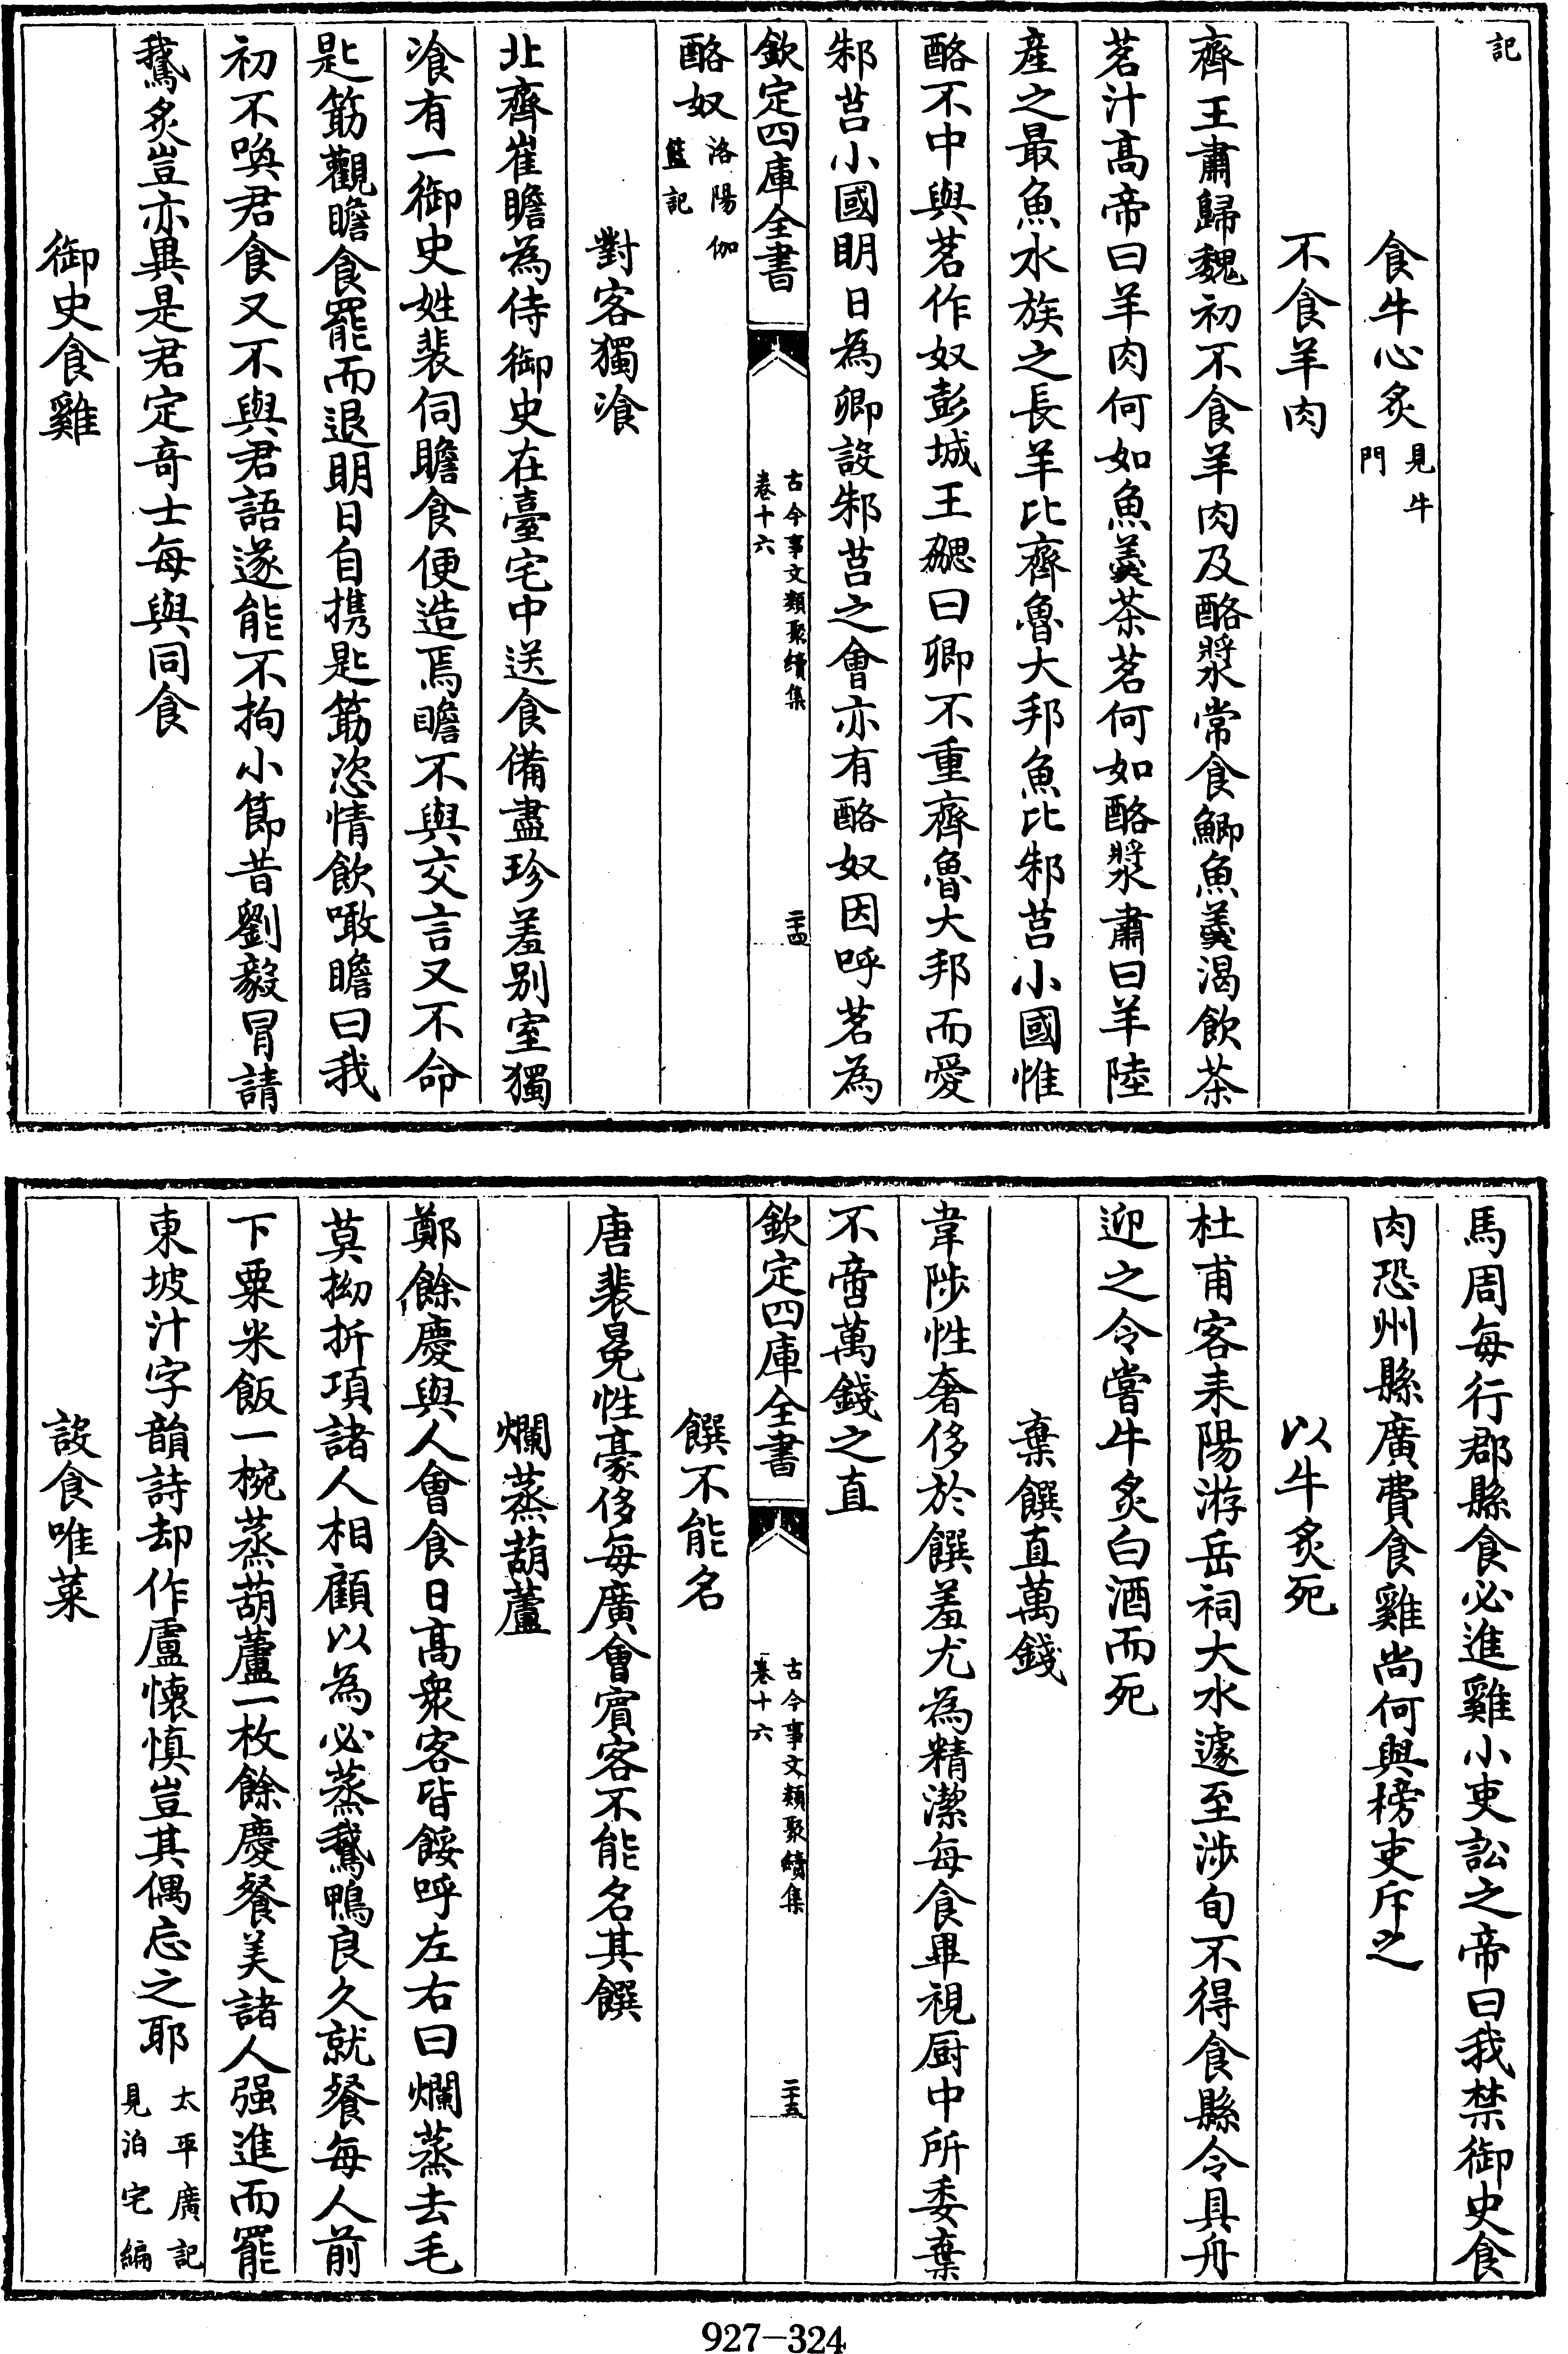 記
食牛心炙見牛門
不食羊肉
齊王肅歸魏初不食羊肉及酪漿常食鯽魚羹渴飲茶
茗汁髙帝曰羊肉何如魚羹茶茗何如酪漿肅曰羊陸
産之最魚水族之長羊比齊魯大邦魚比邾莒小國惟
酪不中與茗作奴彭城王勰曰卿不重齊魯大邦而愛
邾莒小國明日為卿設邾莒之會亦有酪奴因呼茗為
欽定四庫全書 古今事文類聚續集 卷十六 二十四
酪奴洛陽伽藍記
對客獨飡
北齊崔瞻為侍御史在臺宅中送食備盡珍羞别室獨
飡有一御史姓裴伺瞻食便造焉瞻不與交言又不命
匙筯觀瞻食罷而退明日自携匙筯恣情飲噉瞻曰我
初不喚君食又不與君語遂能不拘小節昔劉毅冒請
鵞炙豈亦異是君定竒士每與同食
御史食雞
馬周每行郡縣食必進雞小吏訟之帝曰我禁御史食
肉恐州縣廣費食雞尚何與榜吏斥之
以牛炙死
杜甫客耒陽游岳祠大水遽至涉旬不得食縣令具舟
迎之令嘗牛炙白酒而死
棄饌直萬錢
韋陟性奢侈於饌羞尤為精潔每食畢視厨中所委棄
不啻萬錢之直
欽定四庫全書 古今事文類聚續集 卷十六 二十五
饌不能名
唐裴冕性豪侈每廣會賓客不能名其饌
爛蒸葫蘆
鄭餘慶與人會食日髙衆客皆餒呼左右曰爛蒸去毛
莫拗折項諸人相顧以為必蒸鵞鴨良久就餐每人前
下粟米飯一椀蒸葫蘆一枚餘慶餐美諸人强進而罷
東坡汁字韻詩却作盧懷慎豈其偶忘之耶太平廣記見泊宅編
設食唯菜
927-324